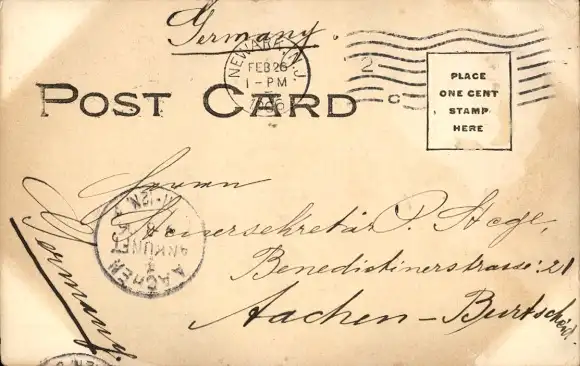 Germany.
NEWARK, N.J.
FEB 26
1 - PM
2
C
POST CARD
PLACE
ONE CENT
STAMP
HERE
Herrn
P. Hege,
Benedictinerstrasse: 21
Aachen-Burtscheid.
Germany.
AACHEN
ANKUNFT